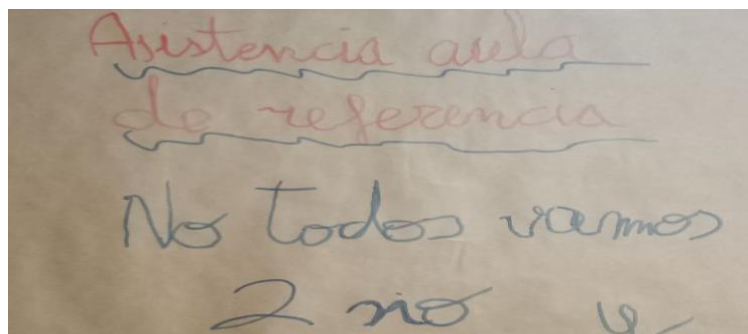 Asistencia aula
de referencia
No todos vamos
2 no